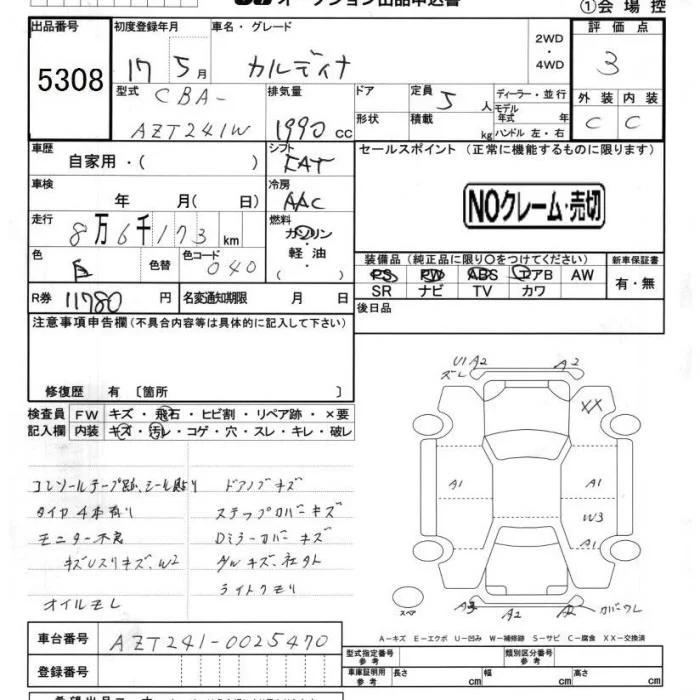 オークション出品申込書
①会場控
出品番号 初度登録年月 車名・グレード 2WD・4WD 評価点
5308 17 5月 カルディナ 3
型式 CBA- AZT241W 排気量 1990 cc ドア 形状 定員 5人 積載 kg ディーラー・並行 モデル年式 年 ハンドル 左・右 外装 内装
C C
車歴 自家用・( ) シフト FAT セールスポイント (正常に機能するものに限ります)
車検 年 月( 日) 冷房 AAC
NOクレーム・売切
走行 8万6千173 km 燃料 ガソリン 軽油 ( ・ )
色 白 色替 色コード 040
装備品 (純正品に限り○をつけてください) 新車保証書
PS PW ABS エアB AW 有・無
SR ナビ TV カワ
R券 11780 円 名変通知期限 月 日
後日品
注意事項申告欄 (不具合内容等は具体的に記入して下さい)
修復歴 有 〔箇所 〕
検査員 FW キズ・飛石・ヒビ割・リペア跡・×要
記入欄 内装 キズ・汚レ・コゲ・穴・スレ・キレ・破レ
コンソールテープ跡、シール貼り ドアノブキズ
タイヤ4本有り ステップカバーキズ
モニター不良 Dミラーカバーキズ
キズUスリキズ、W2
ライトクモリ
オイルモレ
U1 A2 A2
ズレ
XX
A1 A1
W3
A1
スペア A3 A2 A2 カバーワレ
A－キズ E－エクボ U－凹み W－補修跡 S－サビ C－腐食 XX－交換済
車台番号 AZT241-0025470
登録番号
型式指定番号 参考 類別区分番号 参考
車庫証明用 参考 長さ cm 幅 cm 高さ cm